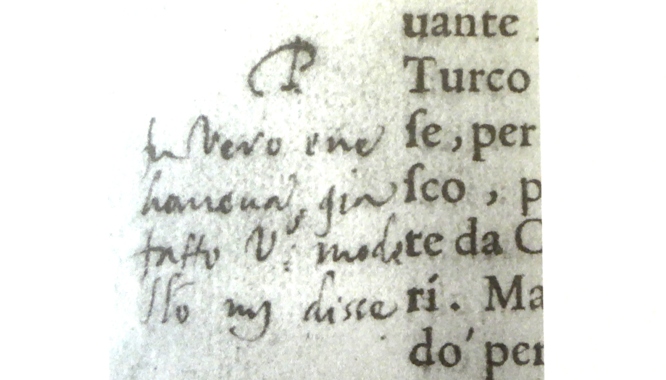 P
vero che
haueua, gia
fatto V: mode
sto mi disse
uante
Turco
ſe, per
ſco , p
te da C
ri. Ma
do' per